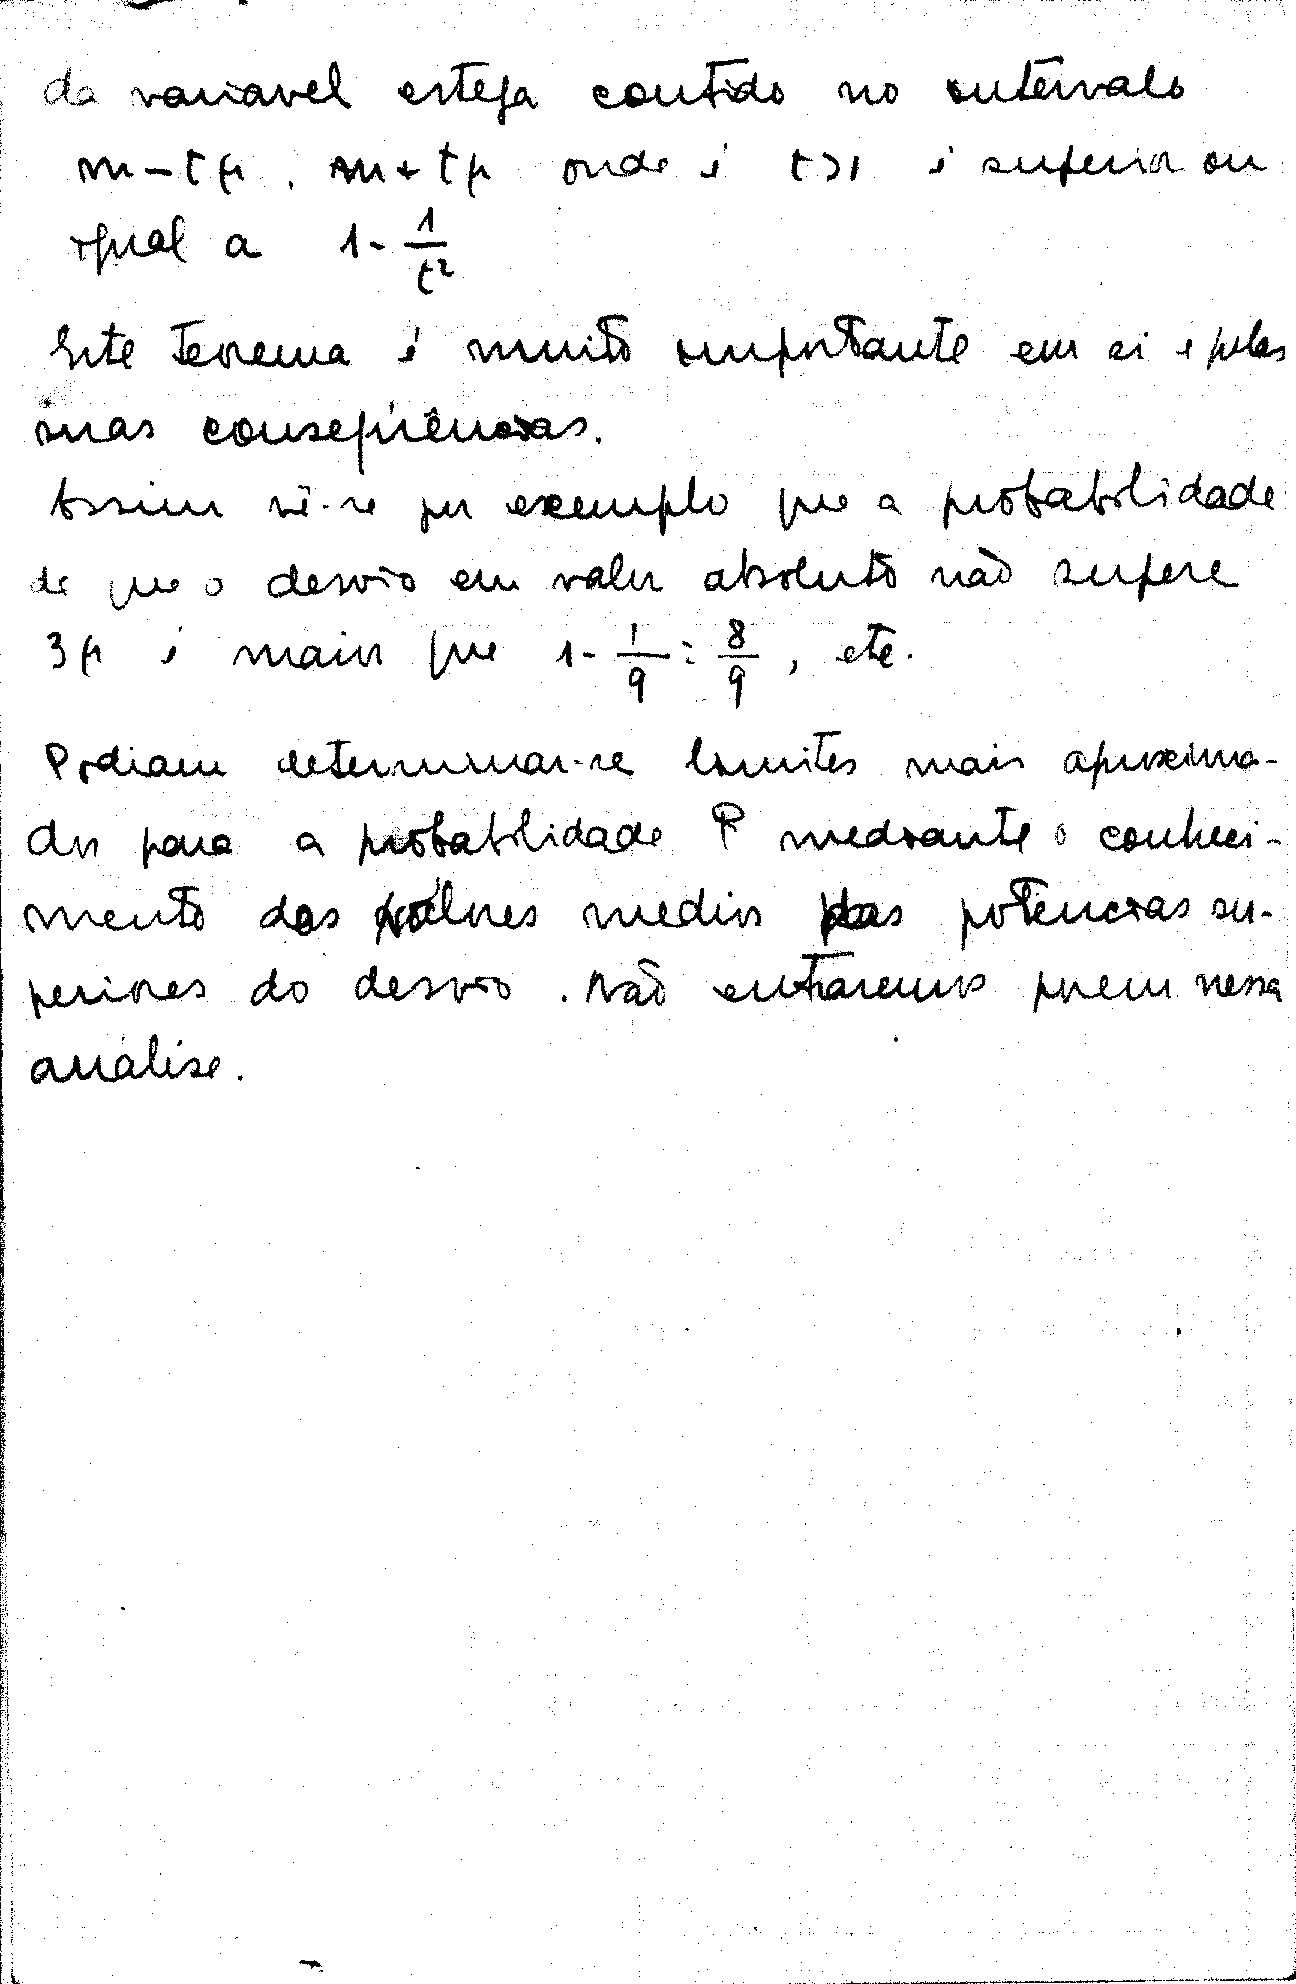 da variavel esteja contido no intervalo
m - tμ, m + tμ onde é t>1 é superior ou
igual a 1 - 1/t²
Este Teorema é muito importante em si e pelas
suas conseqüências.
Assim vê-se por exemplo que a probabilidade
de que o desvio em valor absoluto não supere
3μ é maior que 1 - 1/9 = 8/9, etc.
Podiam determinar-se limites mais aproxima-
dos para a probabilidade P mediante o conheci-
mento dos valores medios das potencias su-
periores do desvio. Não entraremos porem nessa
análise.